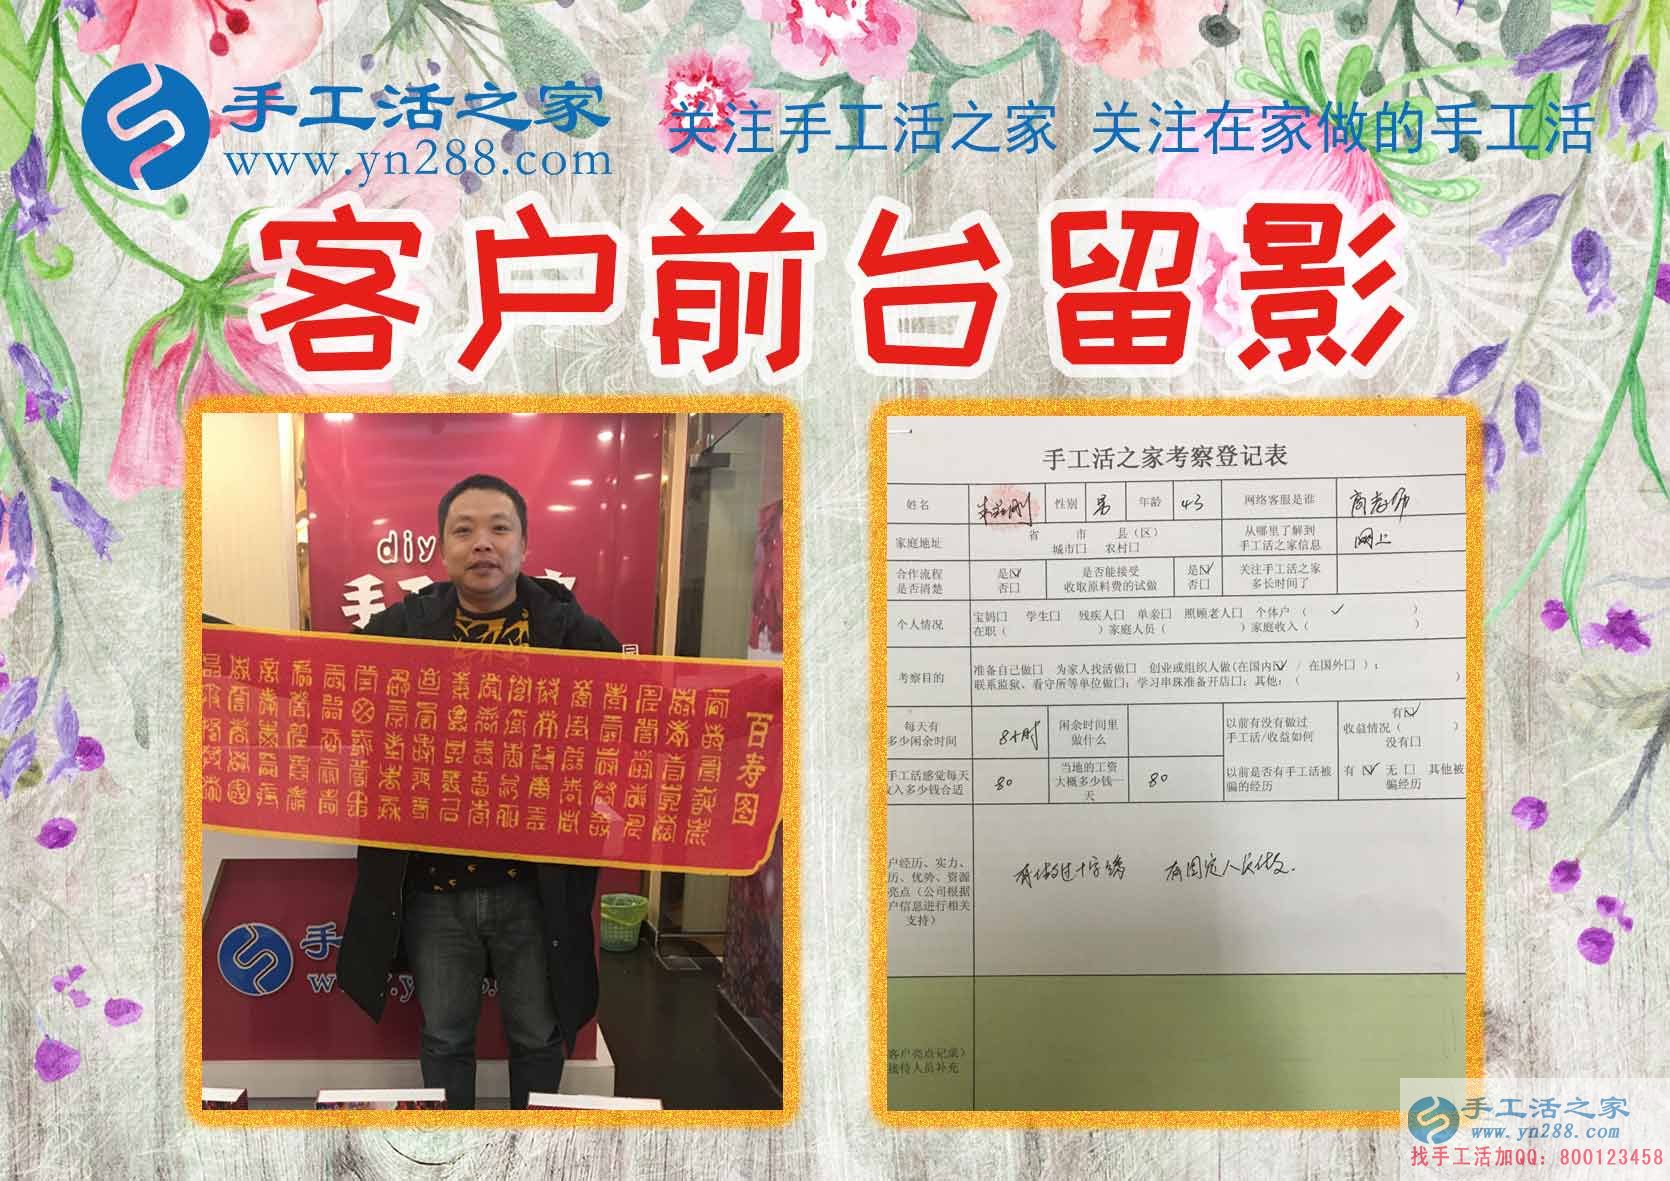 手工活之家
www.yn288.com
关注手工活之家 关注在家做的手工活
客户前台留影
diy
手工
百寿图
手
手工活之家考察登记表
姓名 性别 男 年龄 43 网络客服是谁 商老师
家庭地址 省 市 县（区）
城市口 农村口
从哪里了解到
手工活之家信息
网上
合作流程
是否清楚
是☑
否口
是否能接受
收取原料费的试做
是☑
否口
关注手工活之家
多长时间了
个人情况
宝妈口 学生口 残疾人口 单亲口 照顾老人口 个体户（ ✓ ）
在职（ ）家庭人员（ ）家庭收入（ ）
考察目的
准备自己做口 为家人找活做口 创业或组织人做(在国内☑ / 在国外口 )；
联系监狱、看守所等单位做口；学习串珠准备开店口；其他：（ ）
每天有
多少闲余时间
8小时
闲余时间里
做什么
以前有没有做过
手工活/收益如何
有☑
收益情况（ ）
没有口
手工活感觉每天
收入多少钱合适
80
当地的工资
大概多少钱一
天
80
以前是否有手工活被
骗的经历
有 ☑ 无 口 其他被
骗经历
户经历、实力、
历、优势、资源
亮点（公司根据
户信息进行相关
支持）
有做过十字绣 有固定人员做.
客户亮点记录）
接待人员补充
手工活之家
www.yn288.com
找手工活加QQ: 800123458